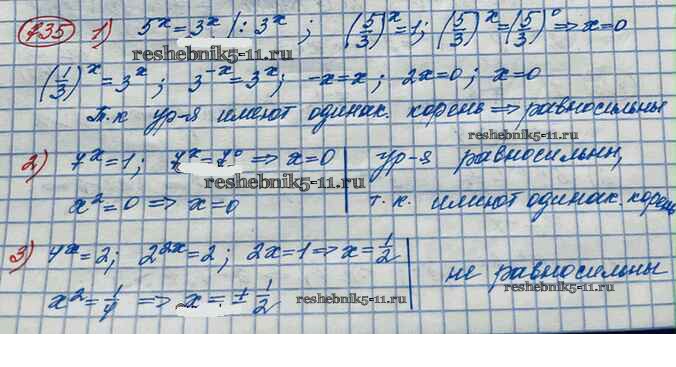 735 1) 5^x = 3^x |: 3^x ; (5/3)^x = 1; (5/3)^x = (5/3)^0 => x = 0
reshebnik5-11.ru
(1/3)^x = 3^x; 3^-x = 3^x; -x = x; 2x = 0; x = 0
Т.к ур-я имеют одинак. корень => равносильны
reshebnik5-11.ru
2) 7^x = 1; 7^x = 7^0 => x = 0 | ур-я равносильны,
reshebnik5-11.ru
x^2 = 0 => x = 0 | т.к. имеют одинак. корень
reshebnik5-11.ru
3) 4^x = 2; 2^2x = 2; 2x = 1 => x = 1/2
x^2 = 1/4 => x = ± 1/2 | не равносильны
reshebnik5-11.ru
reshebnik5-11.ru